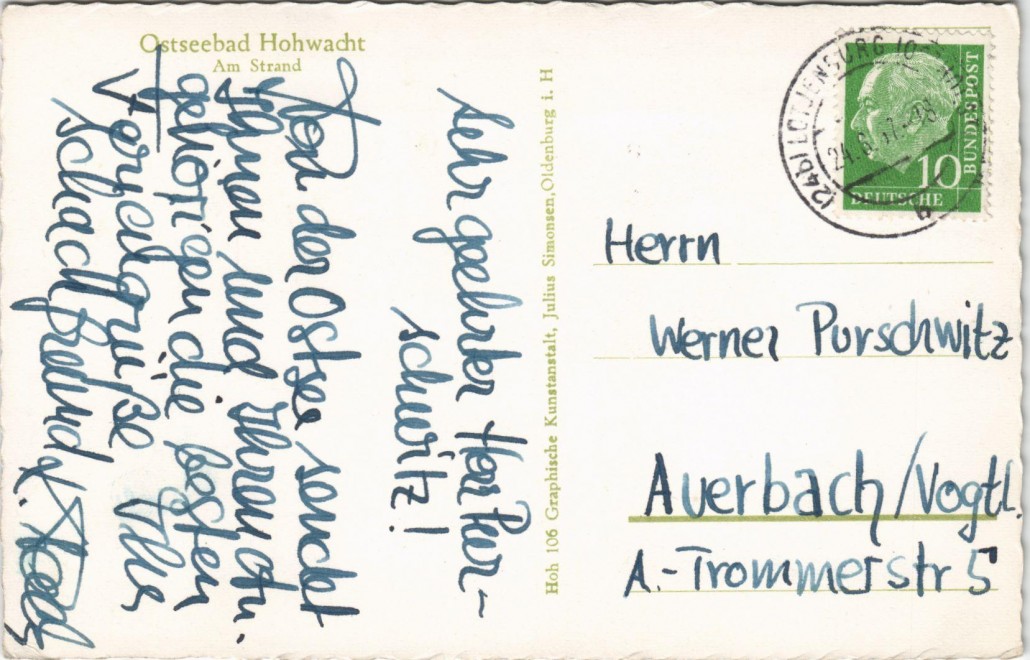 Ostseebad Hohwacht
Am Strand
Sehr geehrter Herr Pur-
schwitz!
Von der Ostsee sendet
Ihnen und Ihren An-
gehörigen die besten
Feriengrüße Ihr
Schachfreund K.
Hoh 106 Graphische Kunstanstalt, Julius Simonsen, Oldenburg i. H
(24b) LÜTJENBURG
24.6.
10
DEUTSCHE
BUNDESPOST
Herrn
Werner Purschwitz
Auerbach/Vogtl.
A.-Trommerstr 5